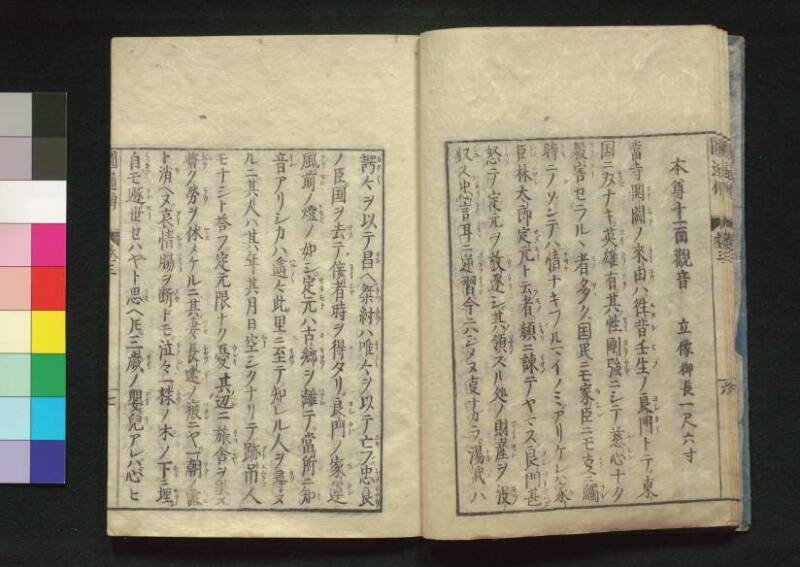 本尊十一面觀音 立像御長一尺六寸
當寺開闢ノ来由ハ徃昔壬生ノ良門トテ東
国ニ双ナキ英雄有其性剛強ニシテ慈心ナク
殺害セラルヽ者多ク国民ニモ家臣ニモ支ニ觸
時ニノゾンデハ情ナキフルマイノミアリケレハ家
臣林太郎定元ト云者頻ニ諌テヤマス良門甚
怒テ定元ヲ放逐シ其領スル処ノ財産ヲ没
収ス忠言耳ニ逆習今ニハシメヌ夏ナカラ湯武ハ
諤々ヲ以テ昌ヘ桀紂ハ唯々ヲ以テ亡フ忠良
ノ臣国ヲ去テ侫者時ヲ得タリ良門ノ家運
風前ノ燈ノ如シ定元ハ古郷ヲ離テ當所ニ知
音アリシカハ遙々此里ニ至テ知レル人ヲ尋ヌ
ルニ其人ハ其年其月日空シクナリテ跡吊人
モナシト荅フ定元限ナク憂其辺ニ旅舎ヲ
暫ク勞ヲ休メケルニ其妻長途ノ疲ニヤ一朝ノ露
ト消ヘヌ哀情腸ヲ断ドモ泣々一株ノ木ノ下ニ埋
自モ遁世セハヤト思ヘ𪜈三歳ノ嬰児アレバ心ヒ
圓通傳